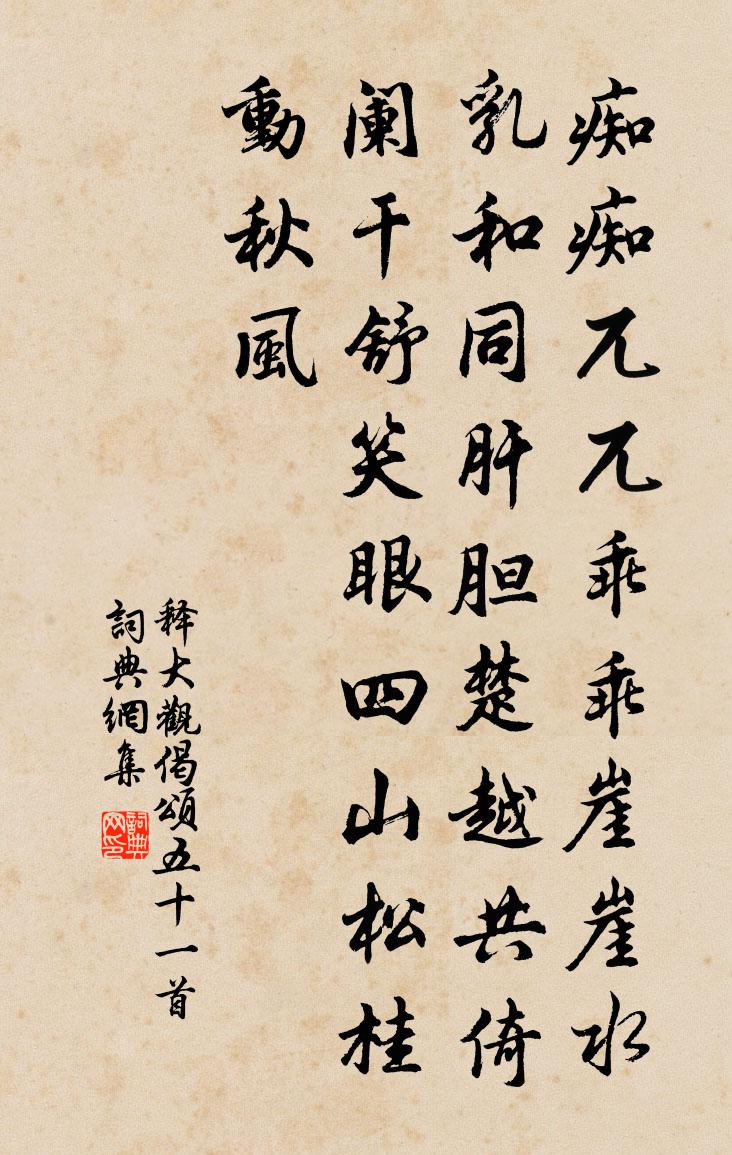 痴痴兀兀乖乖崖崖水
乳和同肝胆楚越共倚
阑干舒笑眼四山松桂
動秋風
释大觀偈頌五十一首
詞典網集
詞典网印